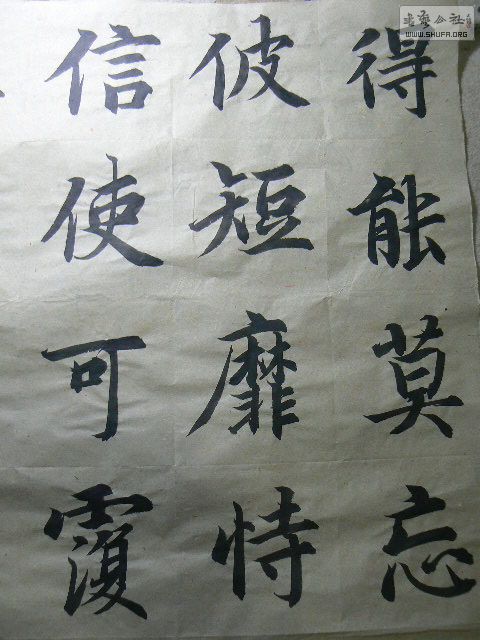 得能莫忘
彼短靡恃
信使可覆
書藝公社
WWW.SHUFA.ORG